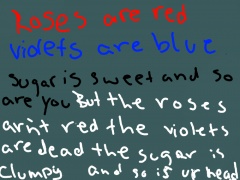 Roses are red
violets are blue
Sugar is sweet and so
are you But the roses
arn't red the violets
are dead the sugar is
Clumpy and so is ur head